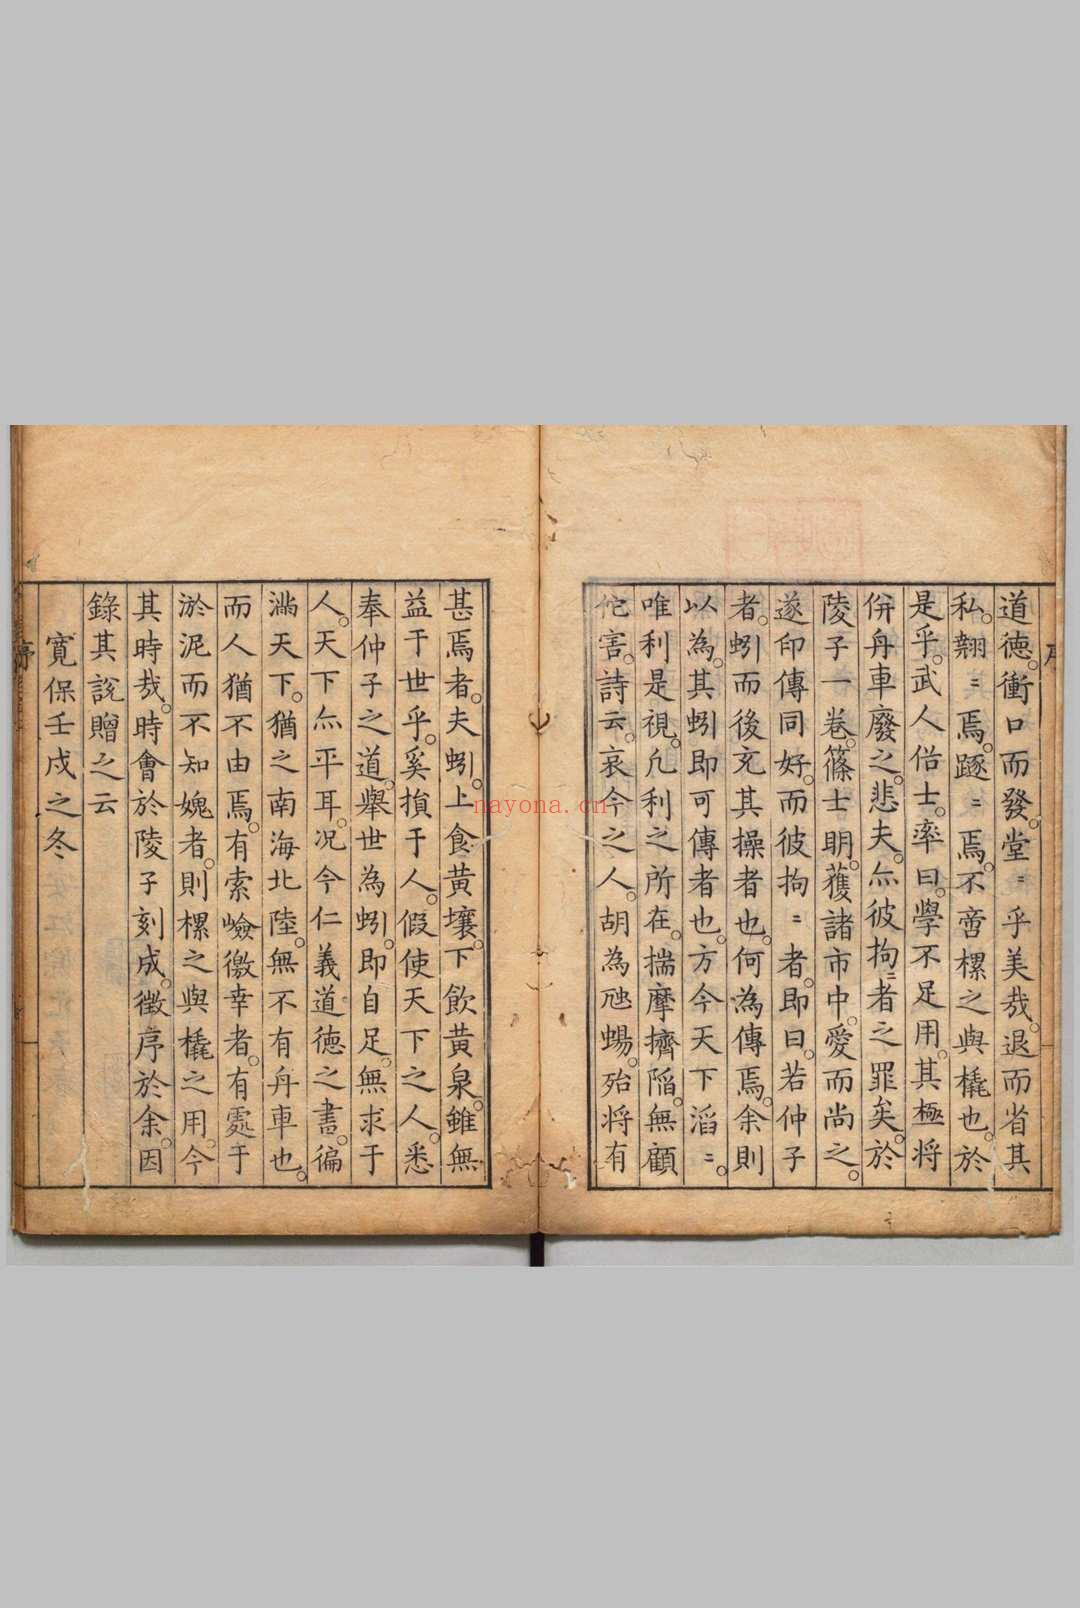 道德。衝口而發。堂〻乎美哉。退而省其
私。翱〻焉。踱〻焉。不啻樏之與橇也。於
是乎。武人俗士。率曰。學不足用。其極將
併舟車廢之。悲夫。亦彼拘〻者之罪矣。於
陵子一卷。篠士明。獲諸市中。愛而尚之。
遂印傳同好。而彼拘〻者。即曰。若仲子
者。蚓而後充其操者也。何為傳焉。余則
以為。其蚓即可傳者也。方今天下滔〻。
唯利是視。凡利之所在。揣摩擠陷。無顧
佗害。詩云。哀今之人。胡為虺蜴。殆將有
甚焉者。夫蚓。上食黃壤。下飲黃泉。雖無
益于世乎。奚損于人。假使天下之人。悉
奉仲子之道。舉世為蚓。即自足。無求于
人。天下亦平耳。況今仁義道德之書。徧
滿天下。猶之南海北陸。無不有舟車也。
而人猶不由焉。有索嶮徼幸者。有處于
淤泥而不知媿者。則樏之與橇之用。今
其時哉。時會於陵子刻成。徵序於余。因
錄其說贈之云
寛保壬戌之冬
序
nayona.cn